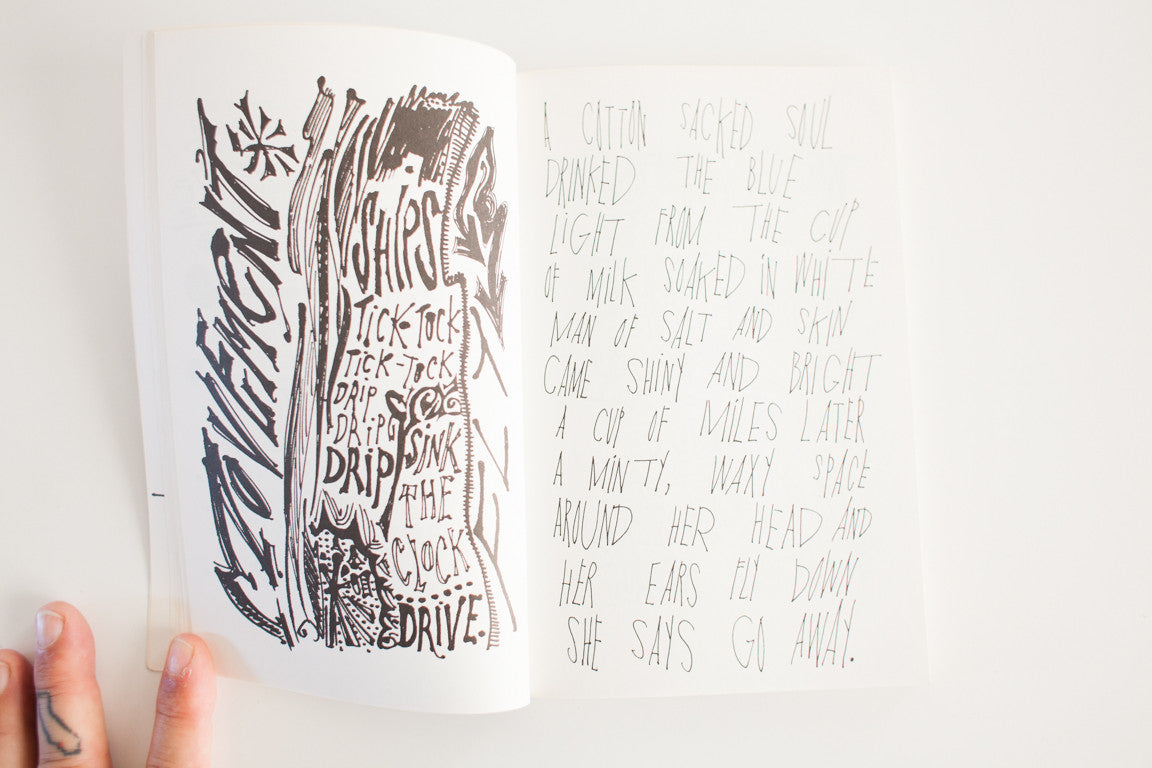 MOVEMENT
SHIPS
TICK-TOCK
TICK-TOCK
DRIP
DRIP
DRIP
SINK
THE
CLOCK
DRIVE.
A COTTON SACKED SOUL
DRINKED THE BLUE
LIGHT FROM THE CUP
OF MILK SOAKED IN WHITE
MAN OF SALT AND SKIN
CAME SHINY AND BRIGHT
A CUP OF MILES LATER
A MINTY, WAXY SPACE
AROUND HER HEAD AND
HER EARS FLY DOWN
SHE SAYS GO AWAY.